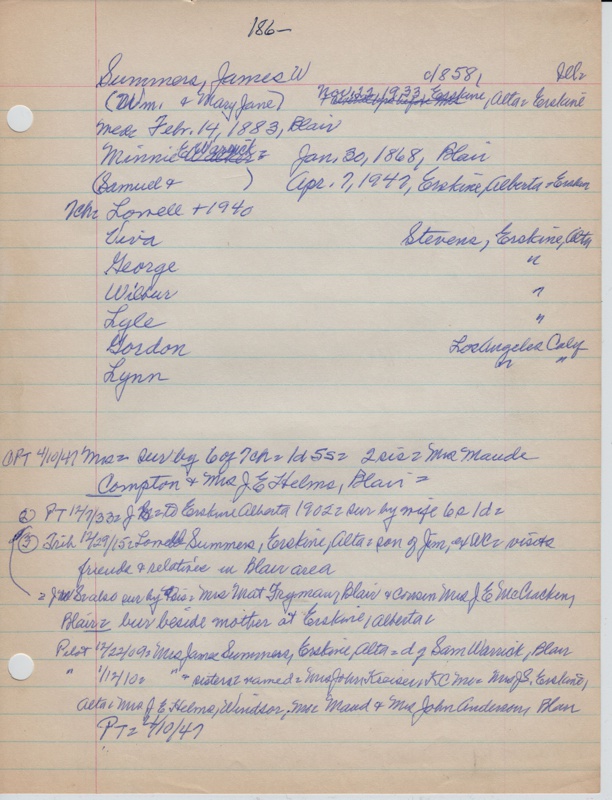 186-
Summers, James W c1858, Ill=
(Wm. & Mary Jane) Nov. 22, 1933, Erskine, Alta = Erskine
med= Febr. 14, 1883, Blair
Minnie E Warrick = Jan. 30, 1868, Blair
(Samuel & ) Apr. 7, 1947, Erskine, Alberta = Erskin
7ch= Lowell + 1940
Viva Stevens, Erskine, Alta
George "
Wilbur "
Lyle "
Gordon Los Angeles Calif
Lynn " "
OPT 4/10/47 Mrs = sur by 6 of 7ch = 1d 5s = 2 sis = Mrs Maude
Compton & Mrs J. E Helms, Blair =
PT 12/7/33 = to Erskine Alberta 1902 = sur by wife 6s 1d =
③ Trib 12/29/15 = Lowell Summers, Erskine, Alta = son of Jim, of WC = visits
friends & relatives in Blair area
= JWS also sur by sis = Mrs Mat Fryman, Blair & cousin Mrs J. E McCracken,
Blair = bur beside mother at Erskine, Alberta =
Pilot 12/22/09 = Mrs James Summers, Erskine, Alta = d of Sam Warrick, Blair
" 1/12/10 = " & sisters = named = Mrs John Kaiser, KC Mo = Mrs JS, Erskine,
Alta = Mrs J. E Helms, Windsor, Mo = Maud & Mrs John Anderson, Blair
PT = 4/10/47